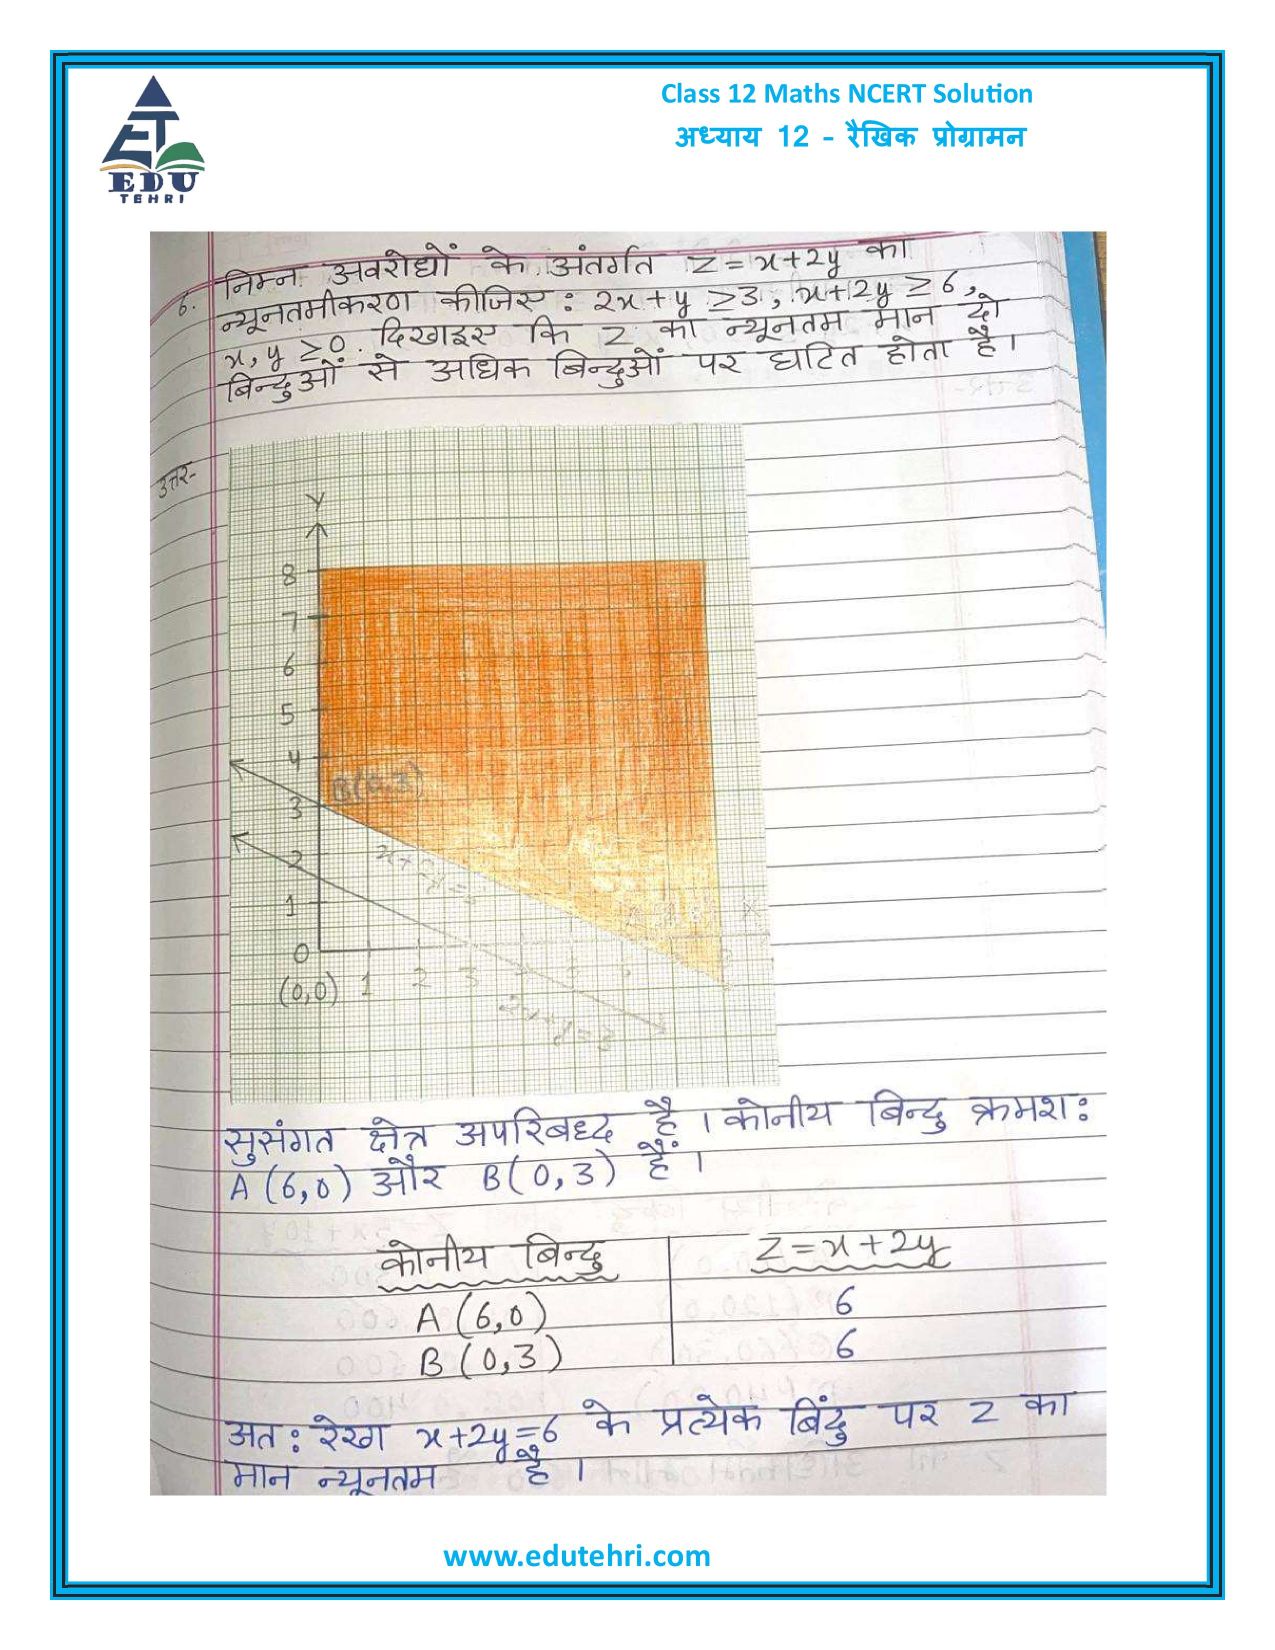 Class 12 Maths NCERT Solution
अध्याय 12 - रैखिक प्रोग्रामन
ET
EDU
TEHRI
6. निम्न अवरोधों के अंतर्गत Z = x + 2y का
न्यूनतमीकरण कीजिए : 2x + y ≥ 3, x + 2y ≥ 6,
x, y ≥ 0. दिखाइए कि Z का न्यूनतम मान दो
बिन्दुओं से अधिक बिन्दुओं पर घटित होता है।
उत्तर-
Y
8
7
6
5
4
B(0,3)
3
2
1
0
(0,0) 1 2 3
2x+y=3
सुसंगत क्षेत्र अपरिबध्द है। कोनीय बिन्दु क्रमश:
A (6,0) और B(0,3) हैं।
कोनीय बिन्दु Z = x + 2y
A (6,0) 6
B (0,3) 6
अत: रेखा x+2y=6 के प्रत्येक बिंदु पर Z का
मान न्यूनतम है।
www.edutehri.com